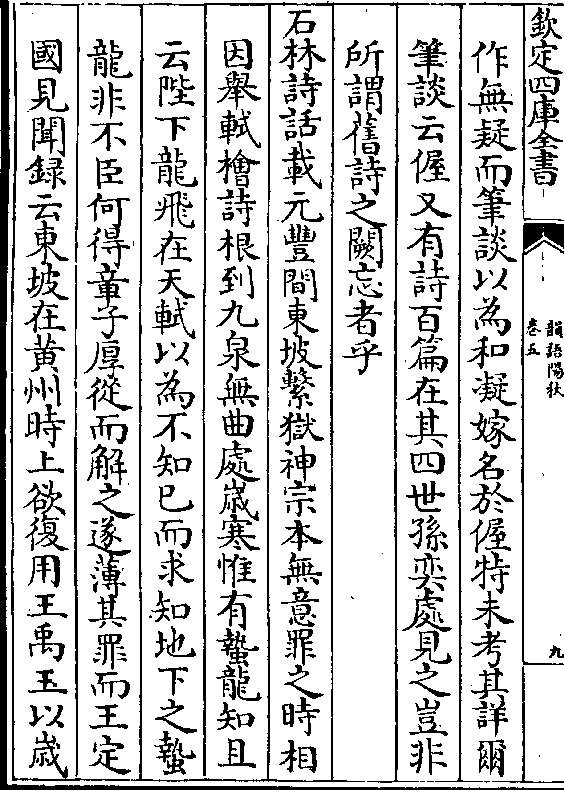 欽定四庫全書
韻語陽秋
卷五
九
作無疑而筆談以為和凝嫁名於偓特未考其詳爾
筆談云偓又有詩百篇在其四世孫奕處見之豈非
所謂舊詩之闕忘者乎
石林詩話載元豐間東坡繫獄神宗本無意罪之時相
因舉軾檜詩根到九泉無曲處歳寒惟有蟄龍知且
云陛下龍飛在天軾以為不知已而求知地下之蟄
龍非不臣何得童子厚從而解之遂薄其罪而王定
國見聞録云東坡在黄州時上欲復用王禹玉以歳